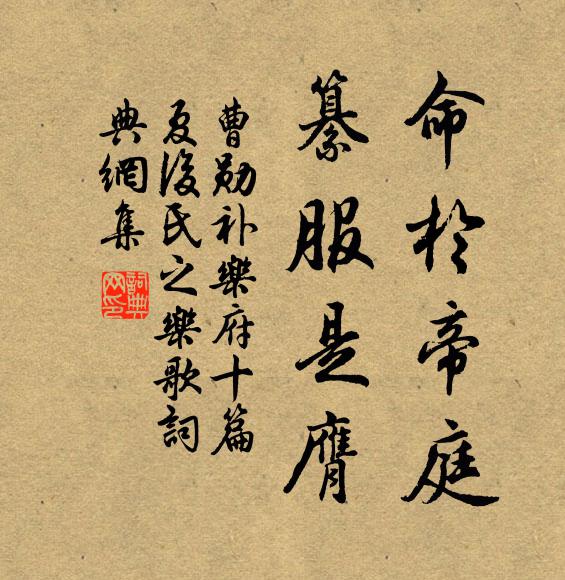 命於帝庭
纂服是膺
曹勛补樂府十篇
夏後氏之樂歌詞
典網集
詞典網印